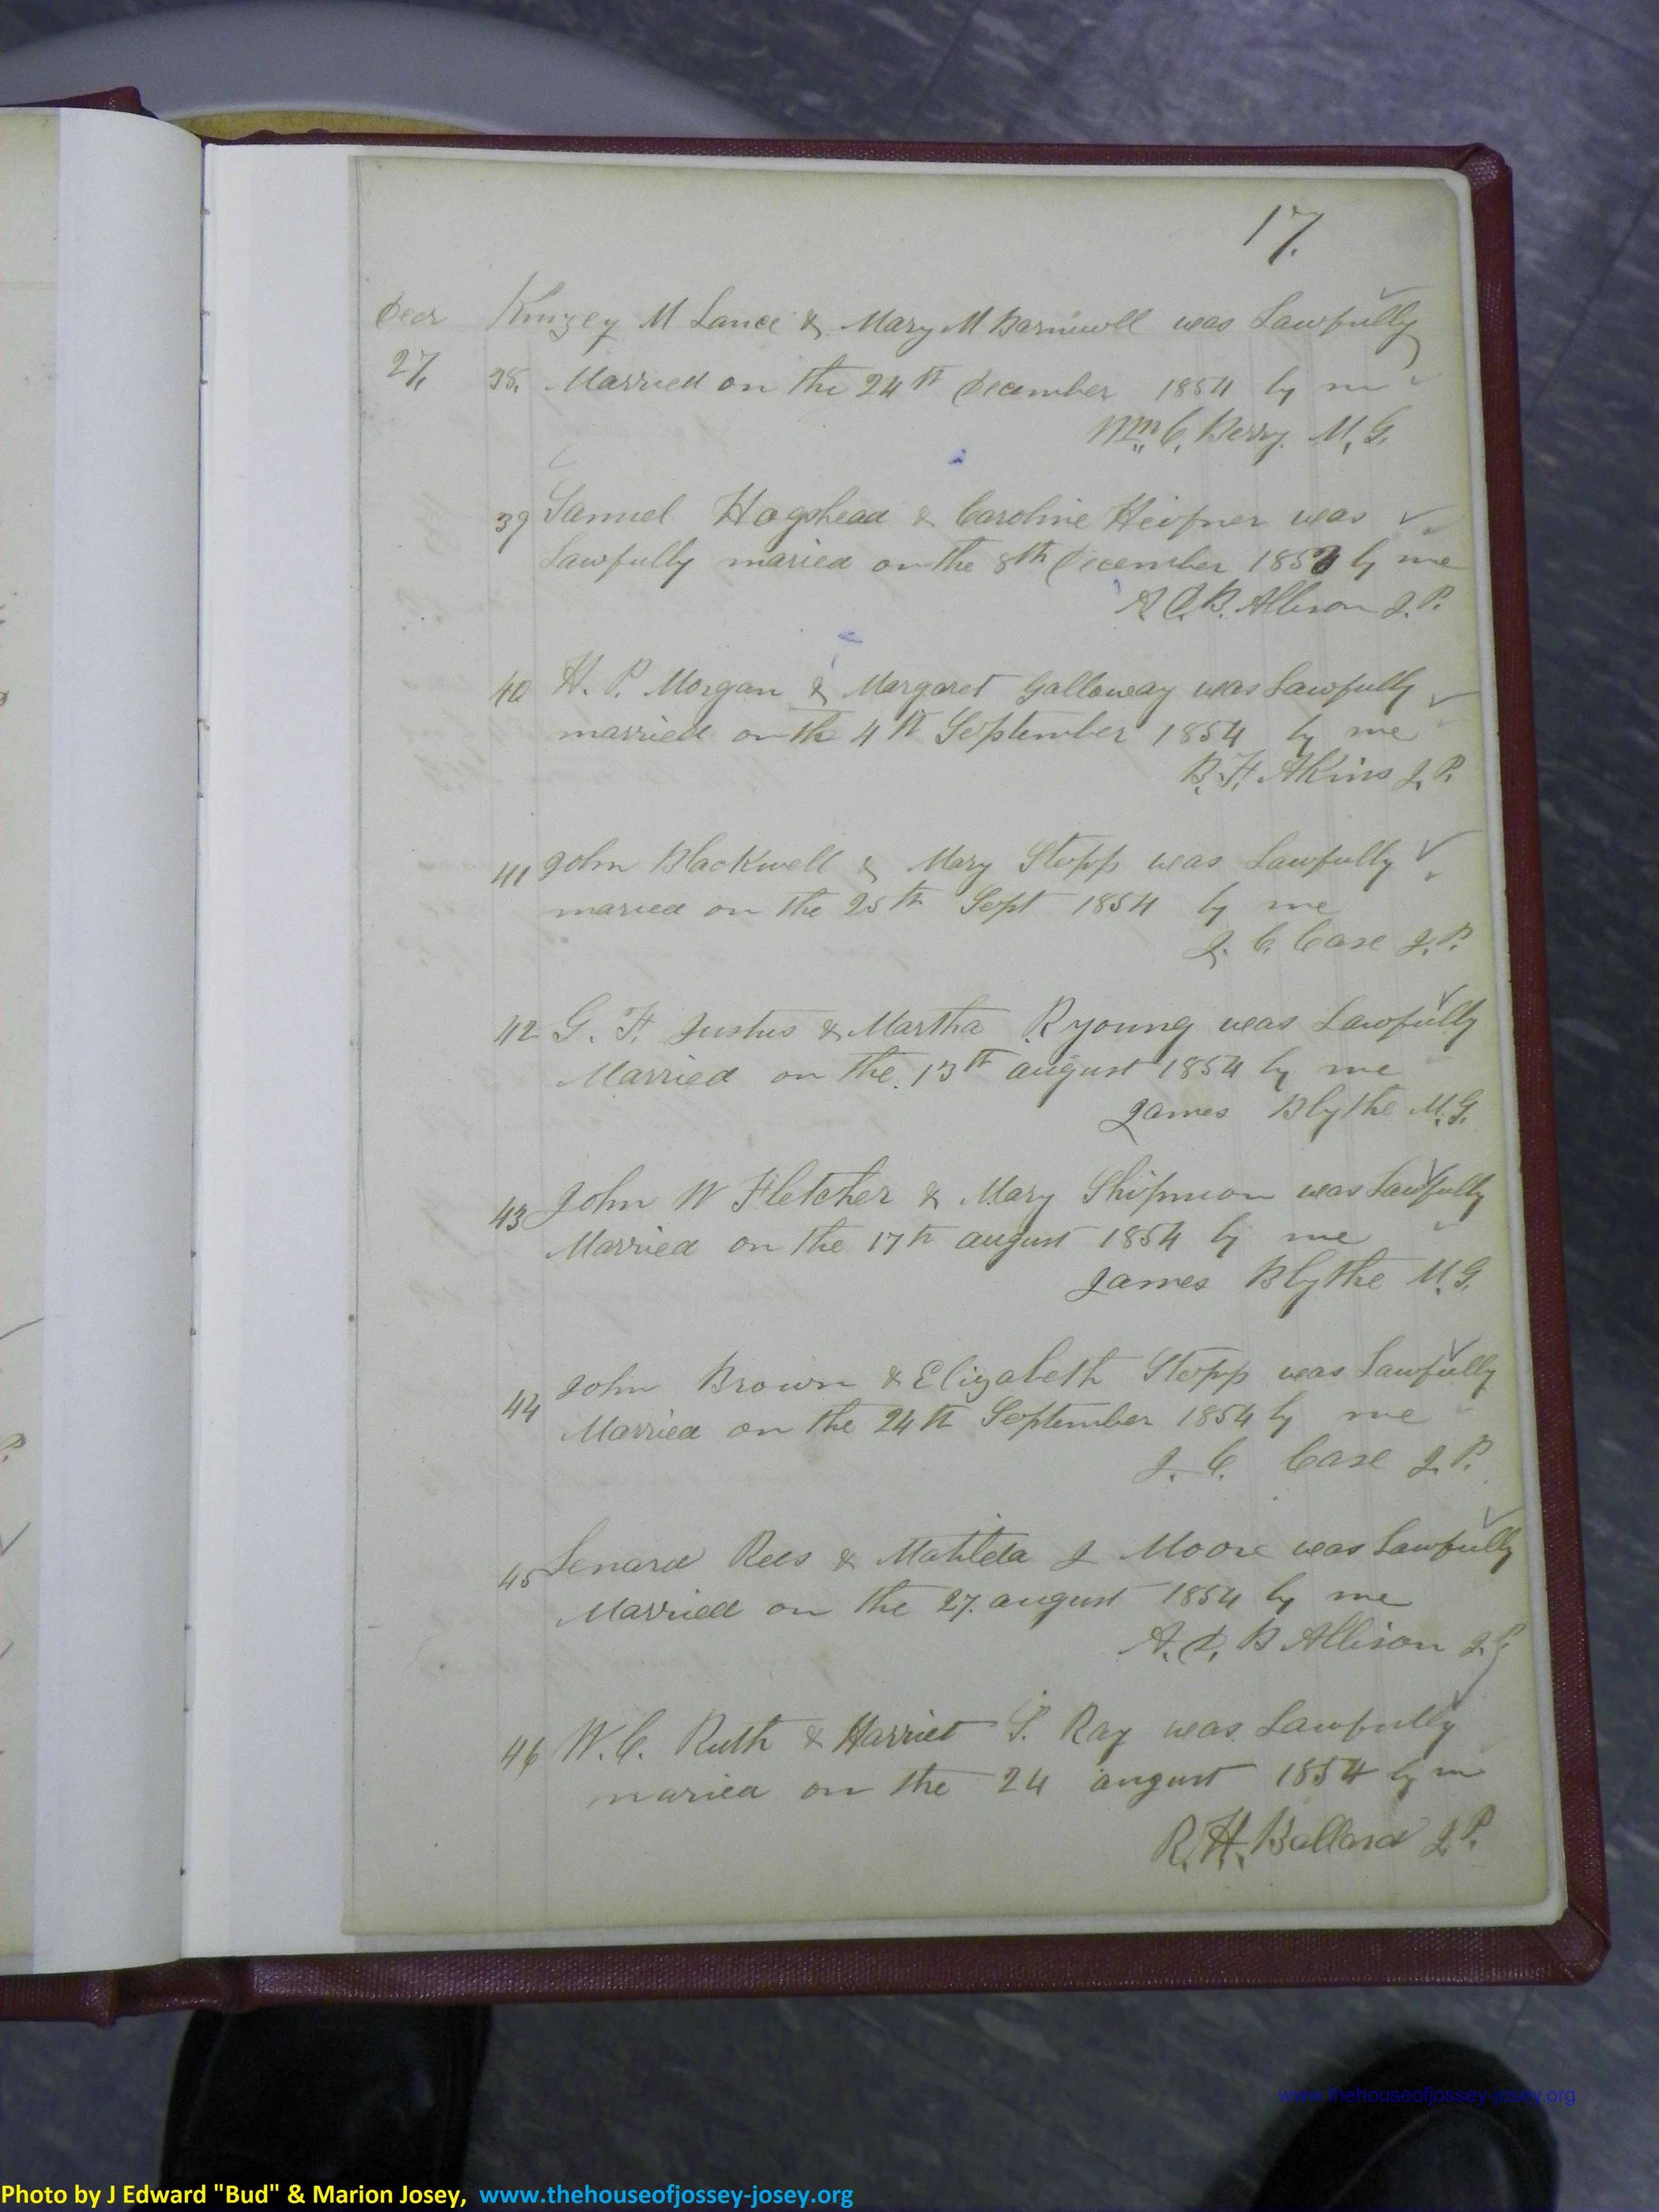 17.
Decr Kinzey M Lance & Mary M Barnwell was Lawfully
27, 38. Married on the 24th December 1854 by me
Wm C. Berry. M. G.
39 Samuel Hogshead & Caroline Heifner was
Lawfully maried on the 8th December 1853 by me
A. D. B. Allison J. P.
40 H. P. Morgan & Margaret Galloway was Lawfully
married on the 4th September 1854 by me
B. F. Akins J. P.
41 John Blackwell & Mary Stepp was Lawfully
maried on the 25th Sept 1854 by me
J. C. Case J. P.
42 G. F. Justus & Martha R young was Lawfully
Married on the 13th august 1854 by me
James Blythe M. G.
43 John W Fletcher & Mary Shipman was Lawfully
Married on the 17th august 1854 by me
James Blythe M. G.
44 John Brown & Elizabeth Stepp was Lawfully
Married on the 24th September 1854 by me
J. C. Case J. P.
45 Lenard Rees & Matilda J Moore was Lawfully
Married on the 27. august 1854 by me
A. D. B Allison J. P
46 W. C. Ruth & Harriet S. Ray was Lawfully
maried on the 24 august 1854 by me
R. H. Ballard J P.
www.thehouseofjossey-josey.org
Photo by J Edward "Bud" & Marion Josey, www.thehouseofjossey-josey.org